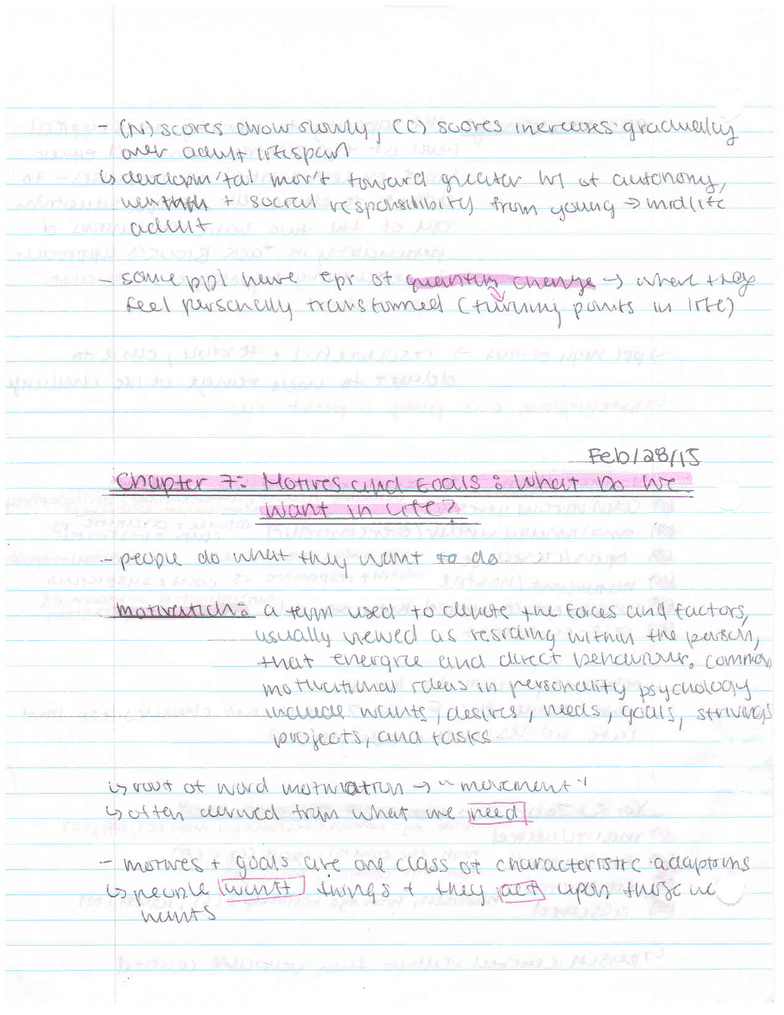 - (N) scores ↓ slowly, (C) scores increases gradually
over adult lifespan
↳ developm'tal mov't toward greater lvl of autonomy,
+ social responsibility from young → midlife
adult
- some ppl have epr of quantum change → where they
feel personally transformed (turning points in life)
Feb/28/15
Chapter 7: Motives and Goals: What Do We
Want in Life?
- people do what they want to do
motivation: a term used to denote the forces and factors,
usually viewed as residing within the person,
that energize and direct behaviour. common
motivational ideas in personality psychology
include wants/desires, needs, goals, strivings
projects, and tasks.
↳ root of word motivation → "movement"
↳ often derived from what we need
- motives + goals are one class of characteristic adaptions
↳ people want things + they act upon those
wants